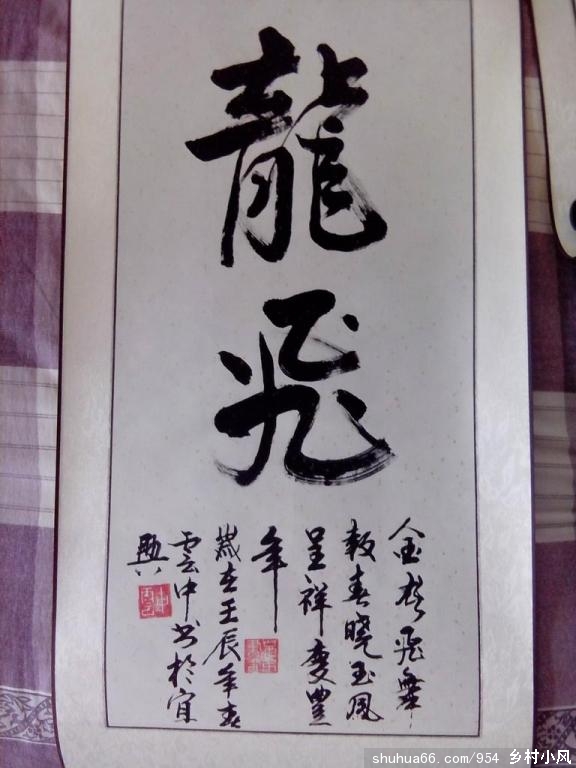 龍飛
金龙飛舞
報春晓玉凤
呈祥慶豐
年
歲在壬辰年春
雲中书於宜
興
shuhua66.com/954 乡村小风